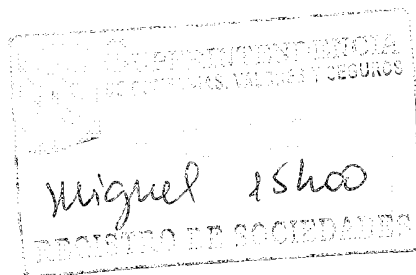 SUPERINTENDENCIA
DE COMPAÑIAS, VALORES Y SEGUROS
Miguel 15h00
REGISTRO DE SOCIEDADES